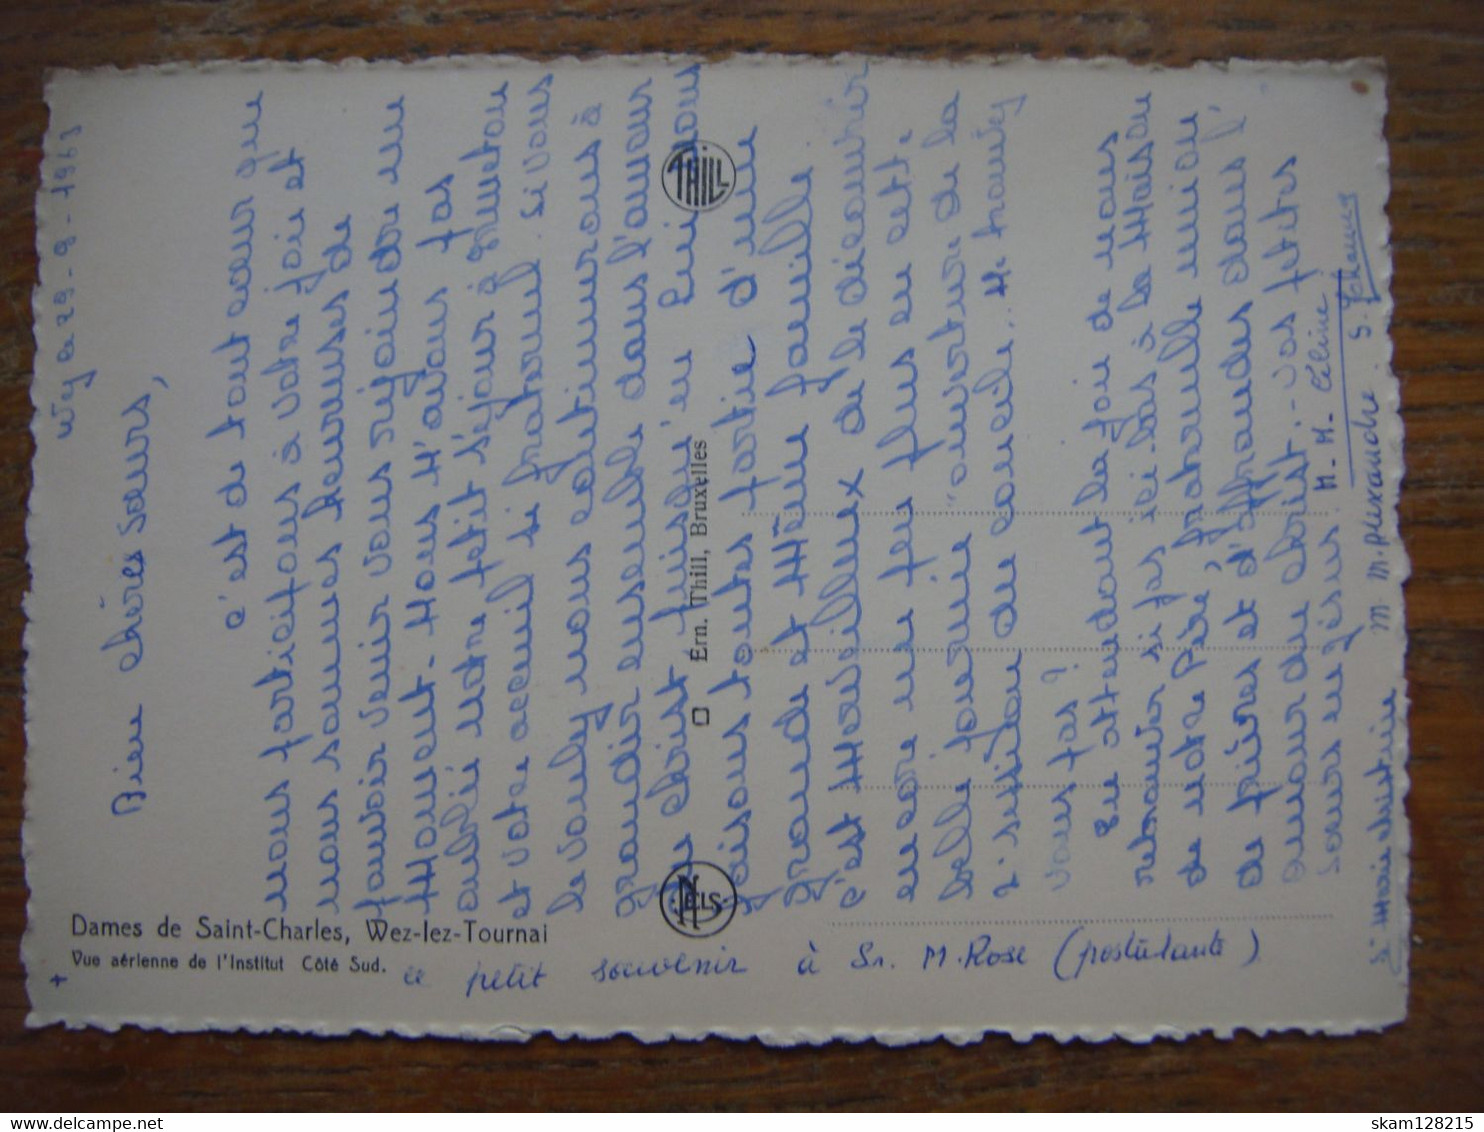 Wez le 29-9-1963
Bien chères sœurs,
c'est de tout cœur que
nous participons à votre joie et
nous sommes heureuses de
pouvoir venir vous rejoindre un
moment - Nous n'avons pas
oublié notre petit séjour à
et votre accueil si fraternel. Si vous
le voulez nous continuerons à
grandir ensemble dans l'amour
du Christ puisqu'en Lui nous
faisons toutes partie d'une
grande et même famille.
c'est merveilleux de le découvrir
encore un peu plus en cette
belle journée "ouverture de la
2e session du concile. Ne trouvez
vous pas?
En attendant la joie de nous
retrouver si pas ici bas à la Maison
de notre Père, fraternelle union
de prières et d'offrandes dans l'
amour du Christ. - vos petites
sœurs en Jésus. M. M. Céline
M. M. Alexandre. S.
Sr Marie
Dames de Saint-Charles, Wez-lez-Tournai
Vue aérienne de l'Institut Côté Sud.
ce petit souvenir à Sr. M. Rose (postulante)
Ern. Thill, Bruxelles
THILL
NELS
skam128215